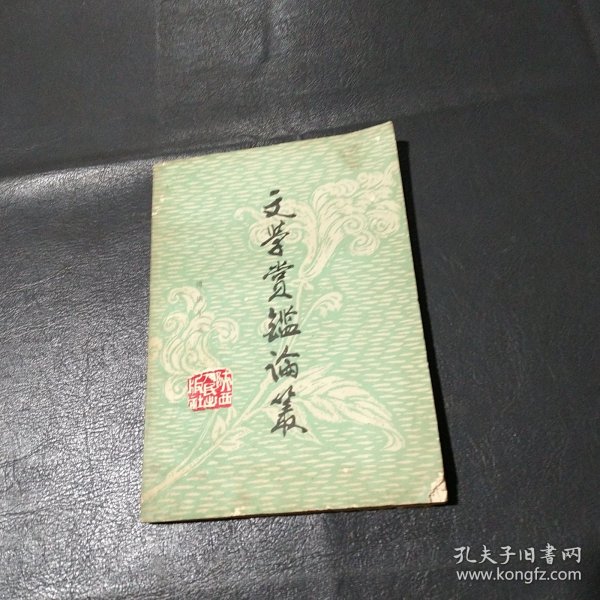 文学赏鑑論叢
陕西
人民出
版社
孔夫子旧書网
www.kongfz.com